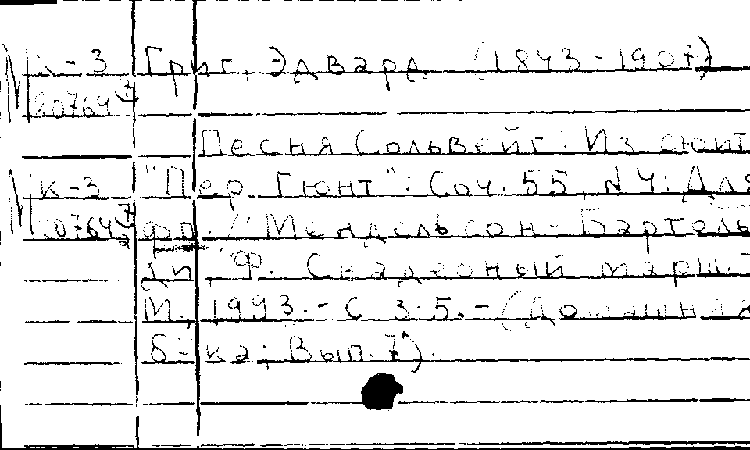 К-3 Григ, Эдвард (1843-1907)
Песня Сольвейг: Из сюит
К-3 "Пер Гюнт": Соч. 55, N 4: Для
фп. / Мендельсон-Бартоль
ди, Ф. Свадебный марш.
М., 1993. - С 3-5. - (Домашняя
б-ка; Вып. 7).